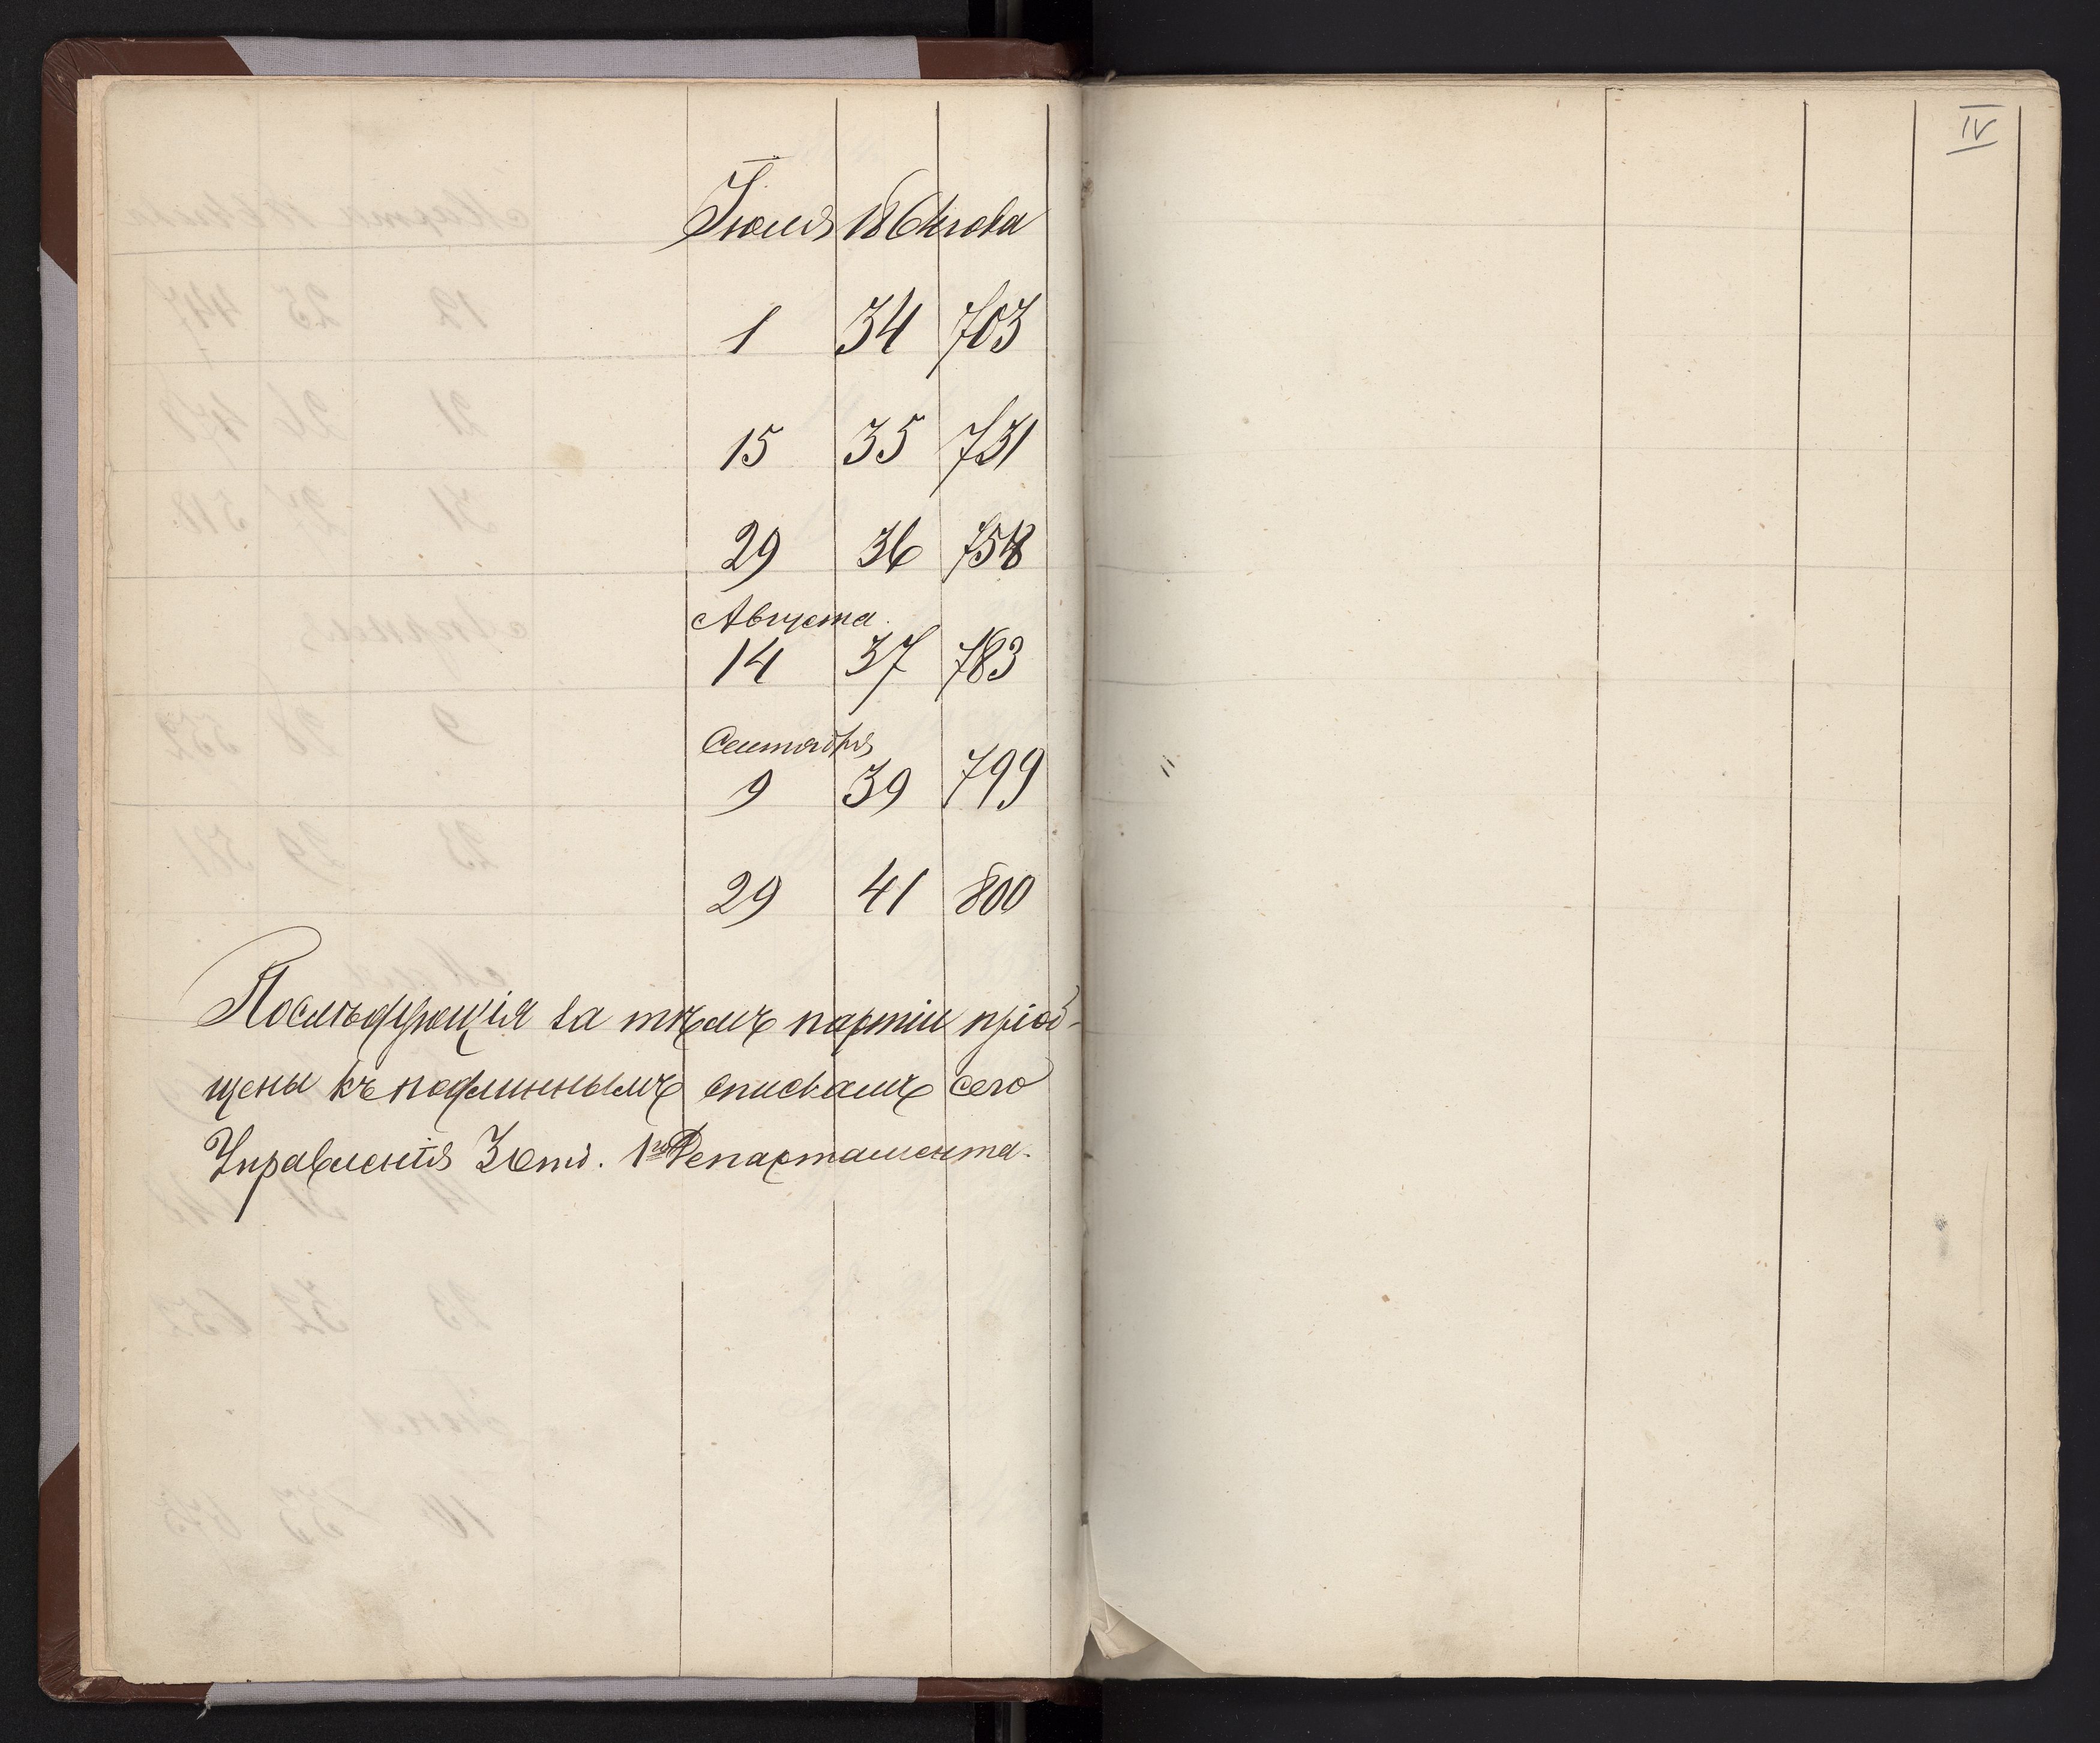 Іюля 1864 года
1 34 703
15 35 731
29 36 758
Августа.
14 37 783
Сентября
9 39 799
29 41 800
Послѣдующія за тѣмъ партіи пріоб-
щены къ подлиннымъ спискамъ сего
Управленія 3 Отд. 1го Департамента.
IV